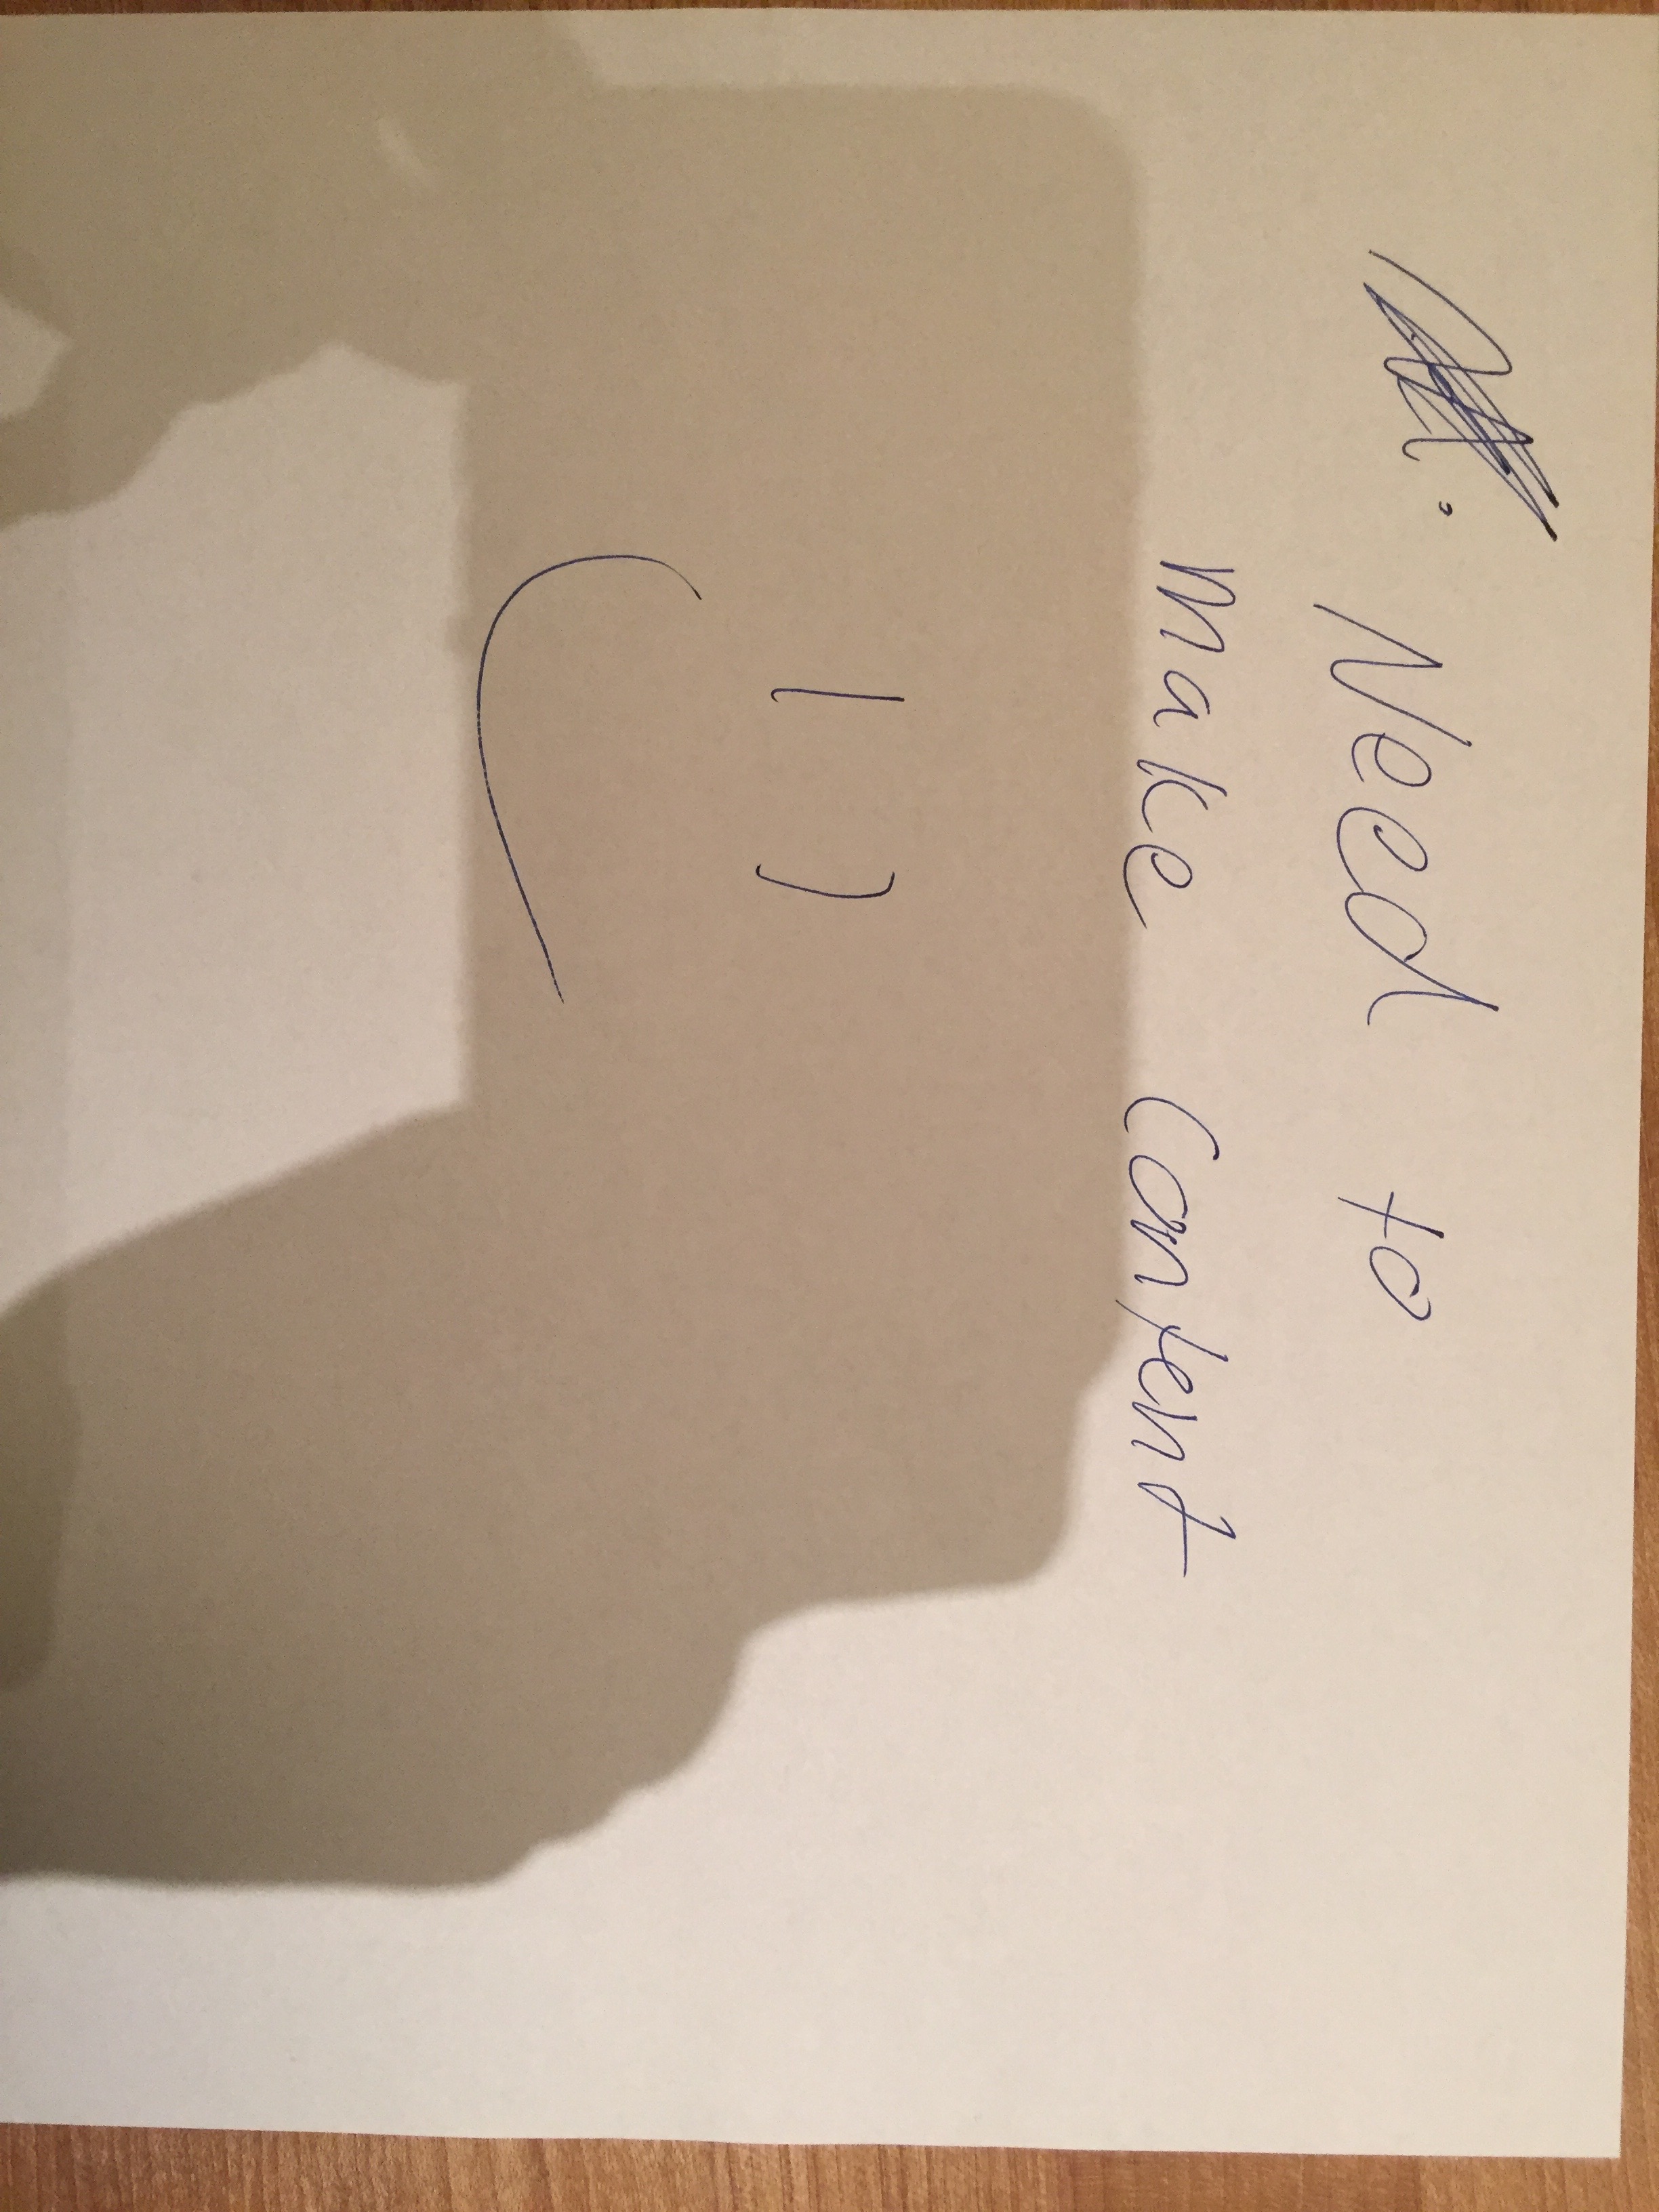 Need to
make content